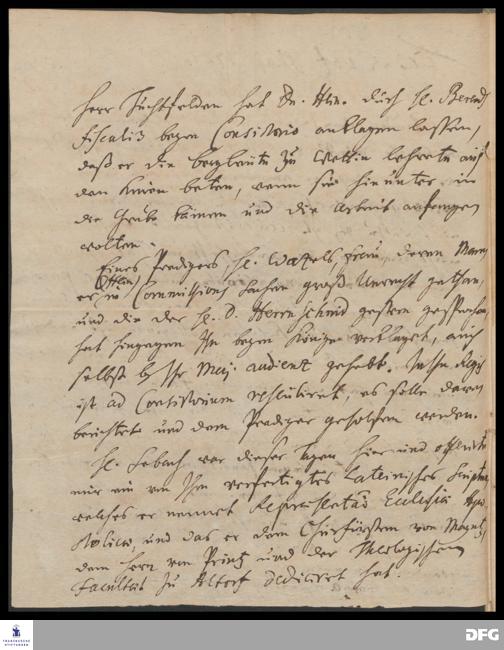 Herr Suchtfelden hat Dr. Hln. durch H. Berend
fiscalis beym Consistorio anklagen lassen,
daß er die bergleute zu Wettin lehrete auf
den Knien beten, wenn sie hinunter in
die Grube kämen und die Arbeit anfangen
wolten.
Eines Predigers H. Watzels, frau, deren Mann
er in Commissions sachen groß Unrecht gethan,
und die der H. D. Herrnschmid gestern gesprochen
hat hingegen Ihn beym Könige verklaget, auch
selbst by Ihr Maj. audientz gehabt. Regis
ist ad Consistorium rescribiret, es solle davon
berichtet und dem Prediger geholfen werden.
H. war dieser tagen hier und offerirte
mir ein von Ihm verfertigtes Lateinisches Scriptum
welches er nennet Ecclesiae
und das er dem Churfürsten von Mayntz
dem Herrn von Printz und der Theologischen
Facultät zu Altorf dediciret hat.
DFG